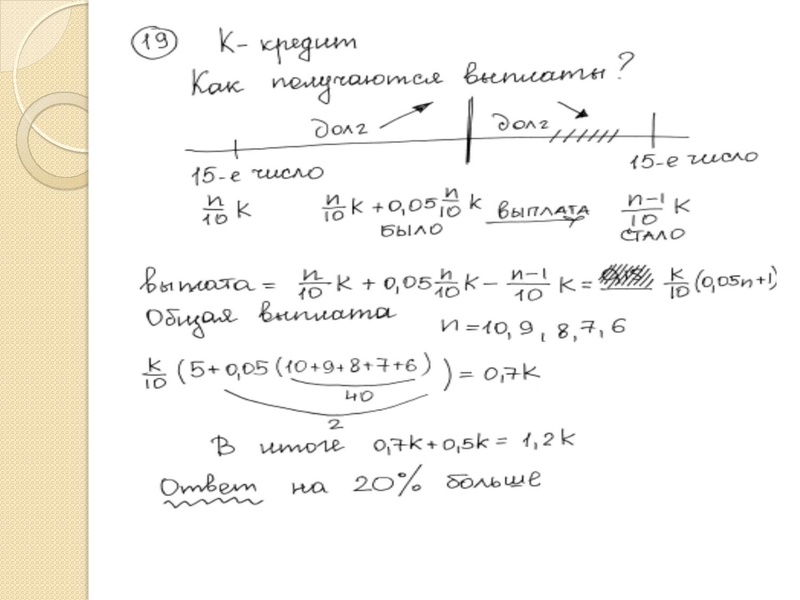 19 К- кредит
Как получаются выплаты?
долг долг
15-е число 15-е число
n/10 K n/10 K + 0,05 n/10 K выплата n-1/10 K
было стало
выплата = n/10 K + 0,05 n/10 K - n-1/10 K = K/10 (0,05n+1)
Общая выплата n=10, 9, 8, 7, 6
K/10 (5+0,05(10+9+8+7+6)) = 0,7K
40
2
В итоге 0,7K+0,5K = 1,2K
Ответ на 20% больше